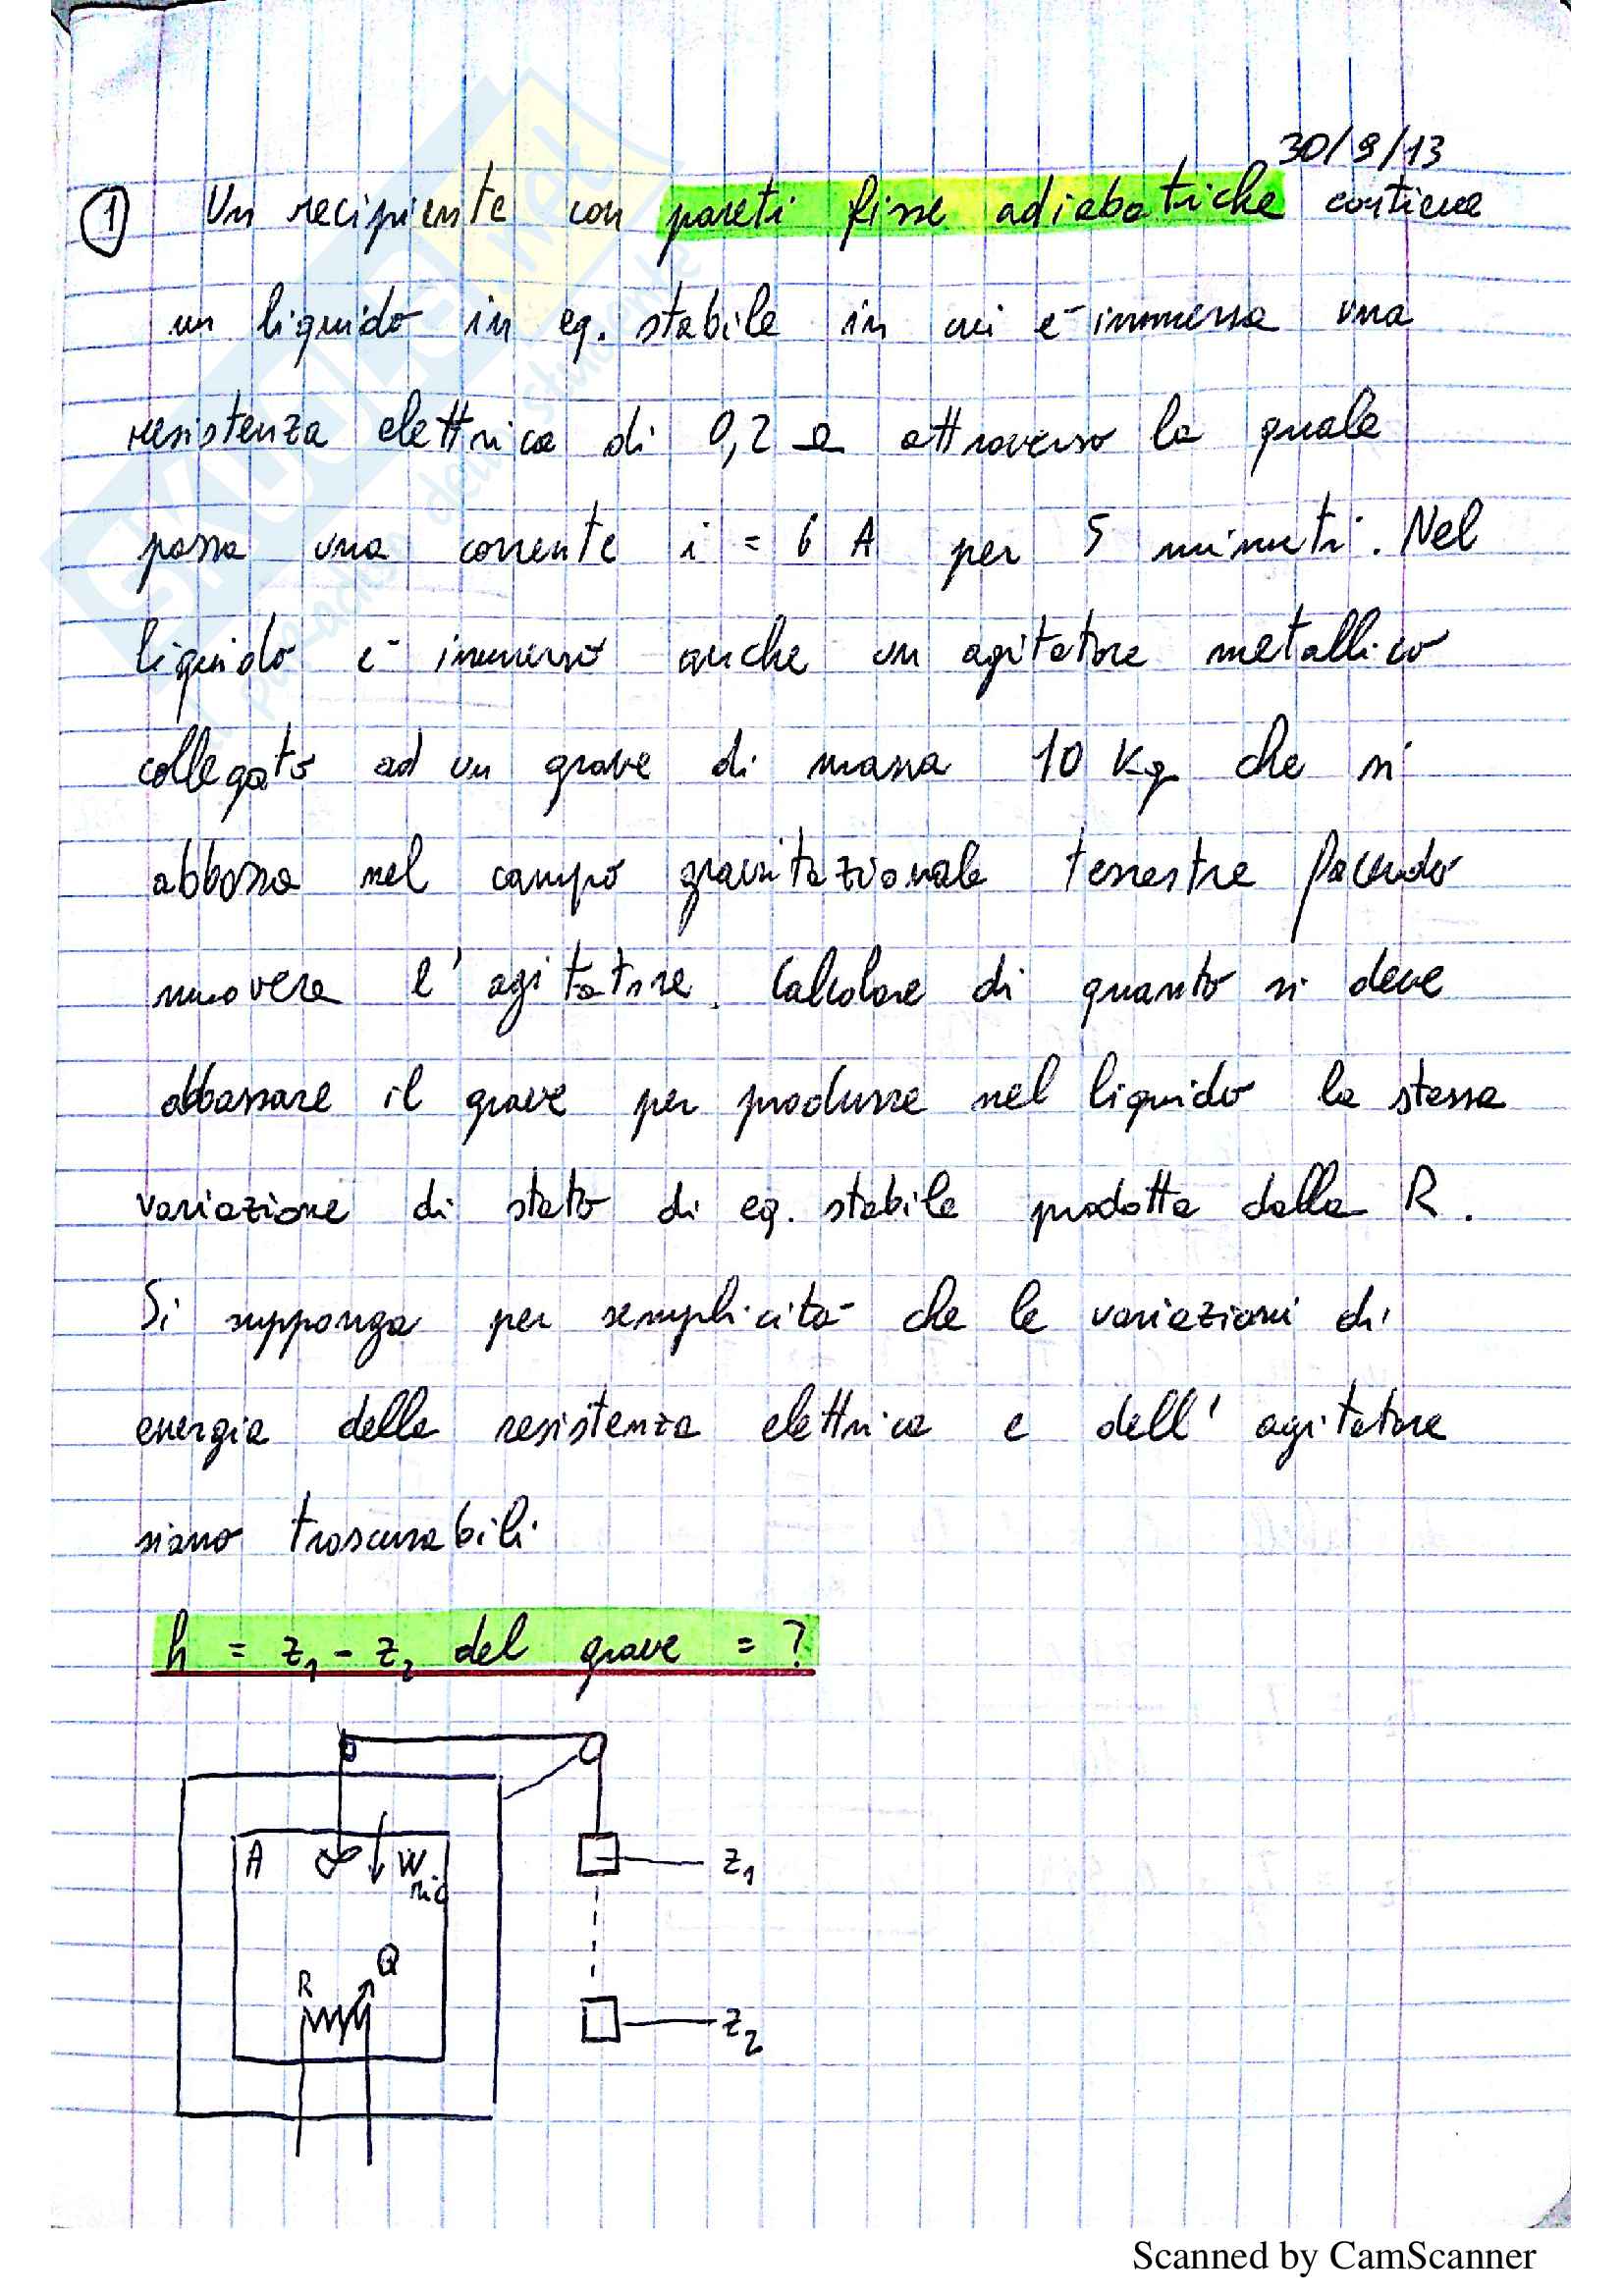 30/9/13
① Un recipiente con pareti fisse adiabatiche contiene
un liquido in eq. stabile in cui è immersa una
resistenza elettrica di 0,2 Ω attraverso la quale
passa una corrente i = 6 A per 5 minuti. Nel
liquido è immerso anche un agitatore metallico
collegato ad un grave di massa 10 Kg che si
abbassa nel campo gravitazionale terrestre facendo
muovere l'agitatore. Calcolare di quanto si deve
abbassare il grave per produrre nel liquido la stessa
variazione di stato di eq. stabile prodotta dalla R.
Si supponga per semplicità che le variazioni di
energia della resistenza elettrica e dell'agitatore
siano trascurabili.
h = z₁ - z₂ del grave = ?
A W ric z₁
Q
R
z₂
Scanned by CamScanner